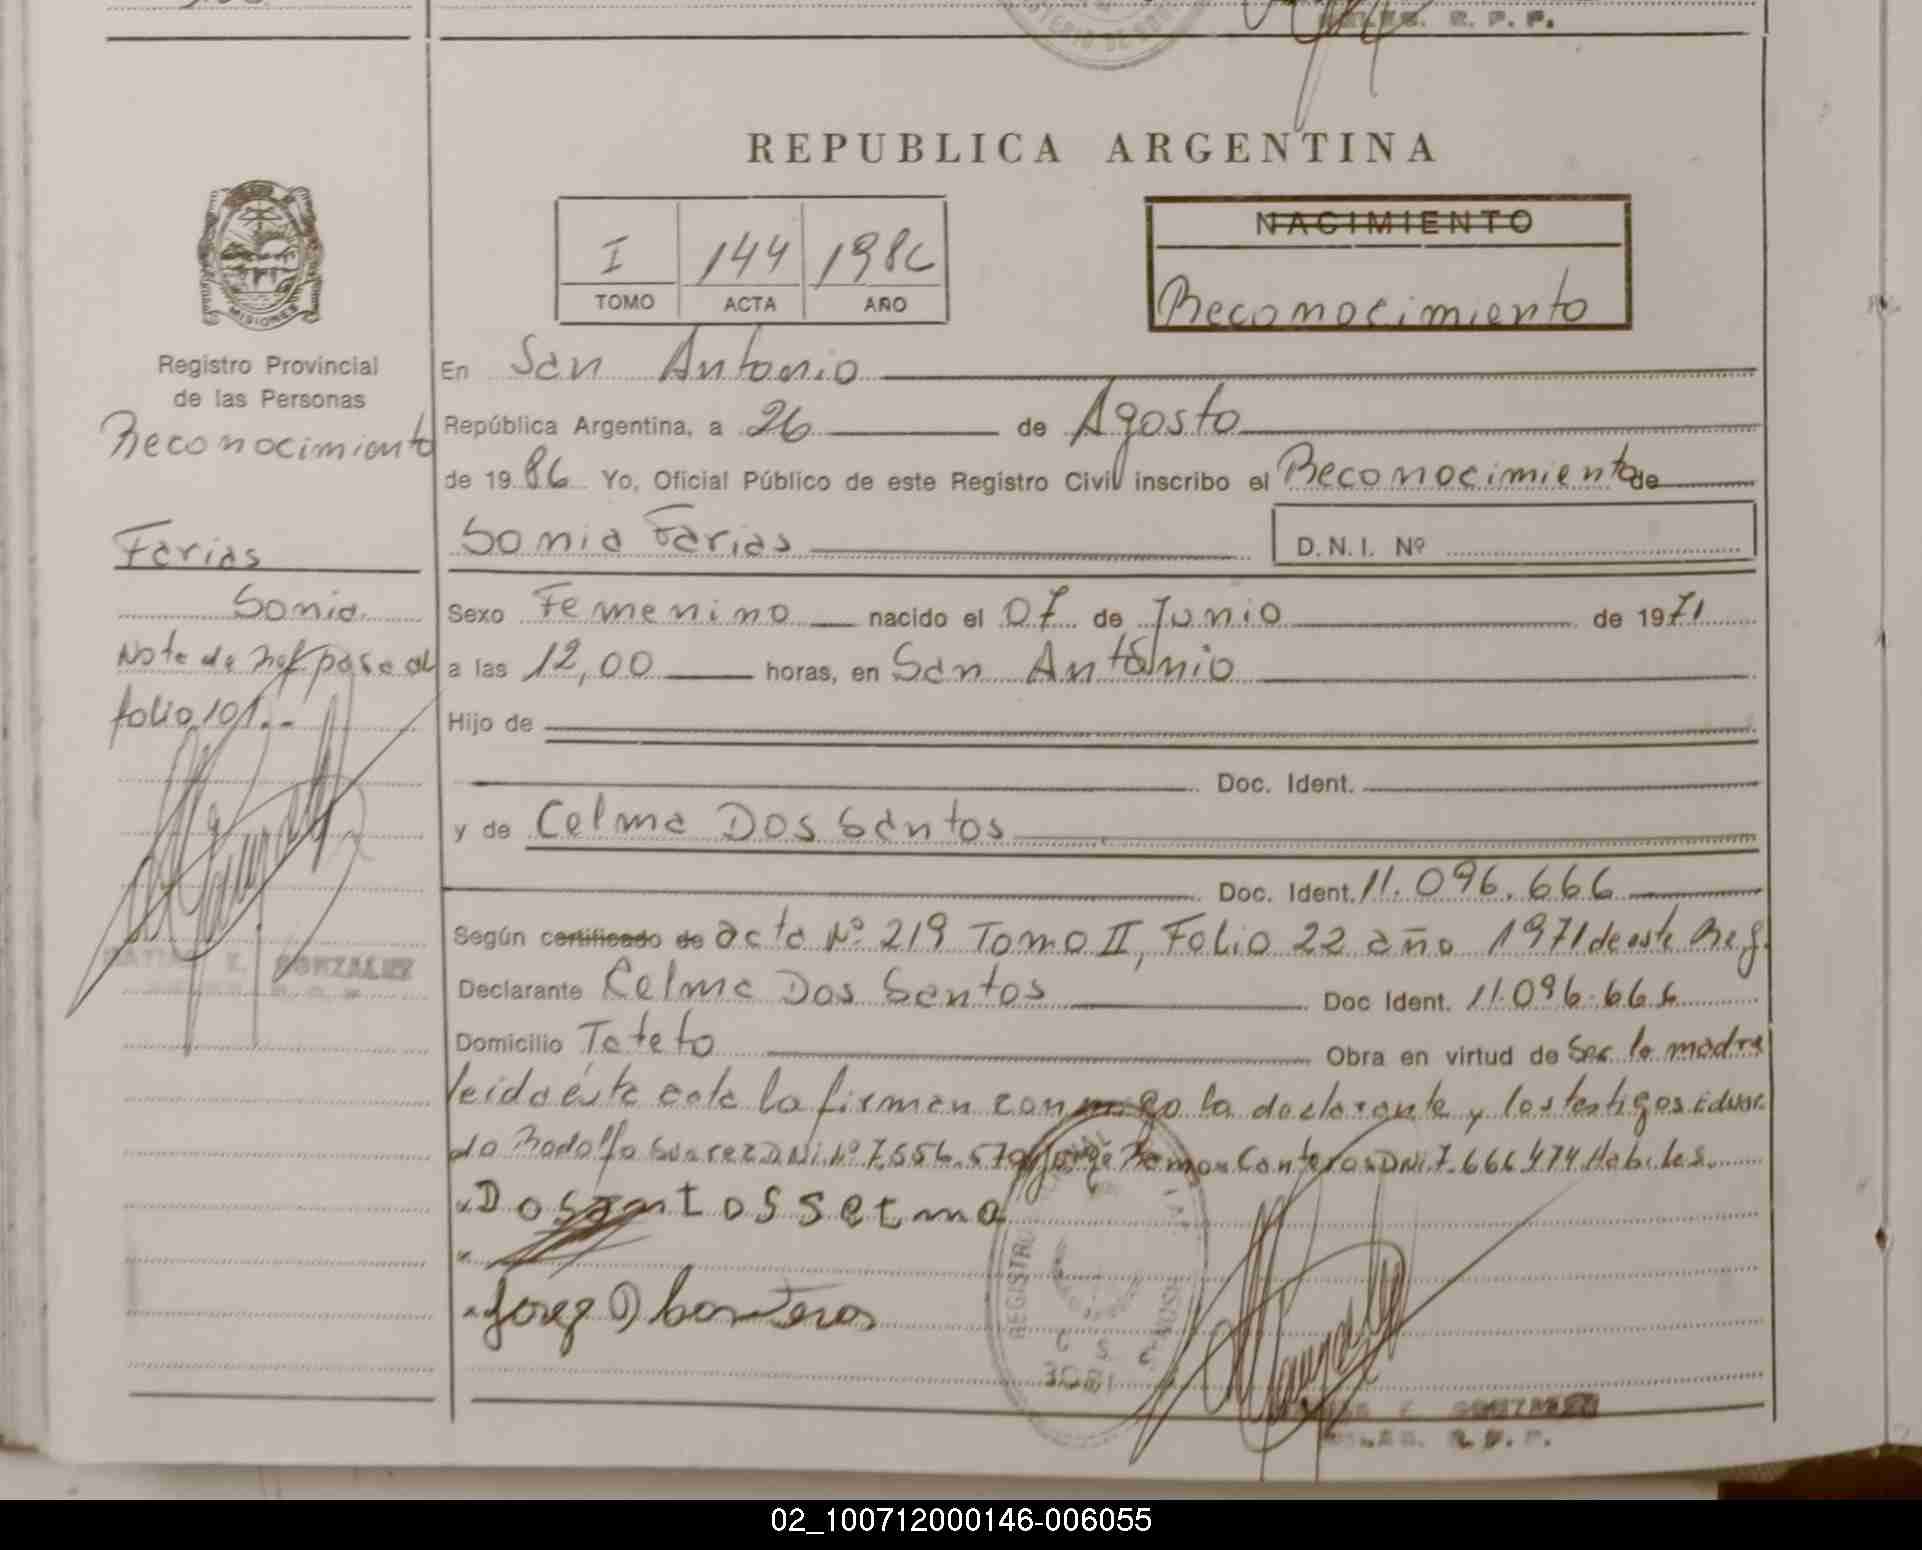 REPUBLICA ARGENTINA
NACIMIENTO
Reconocimiento
I 144 1986
TOMO ACTA AÑO
MISIONES
Registro Provincial
de las Personas
Reconocimiento
Farias
Sonia
Nota de Ref pasa al
folio 101.-
GONZALEZ
En San Antonio
República Argentina, a 26 de Agosto
de 1986 Yo, Oficial Público de este Registro Civil inscribo el Reconocimiento de
Sonia Farias D.N.I. Nº
Sexo Femenino nacido el 07 de Junio de 1971
a las 12,00 horas, en San Antonio
Hijo de
Doc. Ident.
y de Celma Dos Santos
Doc. Ident. 11.096.666
Según certificado de acta Nº 219 Tomo II, Folio 22 año 1971 de este Reg.
Declarante Celma Dos Santos Doc Ident. 11.096.666
Domicilio Tateto Obra en virtud de Ser la madre
leida ésta acta la firman conmigo la declarante y los testigos Eduar
do Rodolfo Suarez DNI. Nº 7.556.579 y Jorge Ramon Conteras DNI. 7.666.474 Habiles.
Dosantos Selma
Jorge Conteras
REGISTRO
GONZALEZ
R. P. P.
02_100712000146-006055